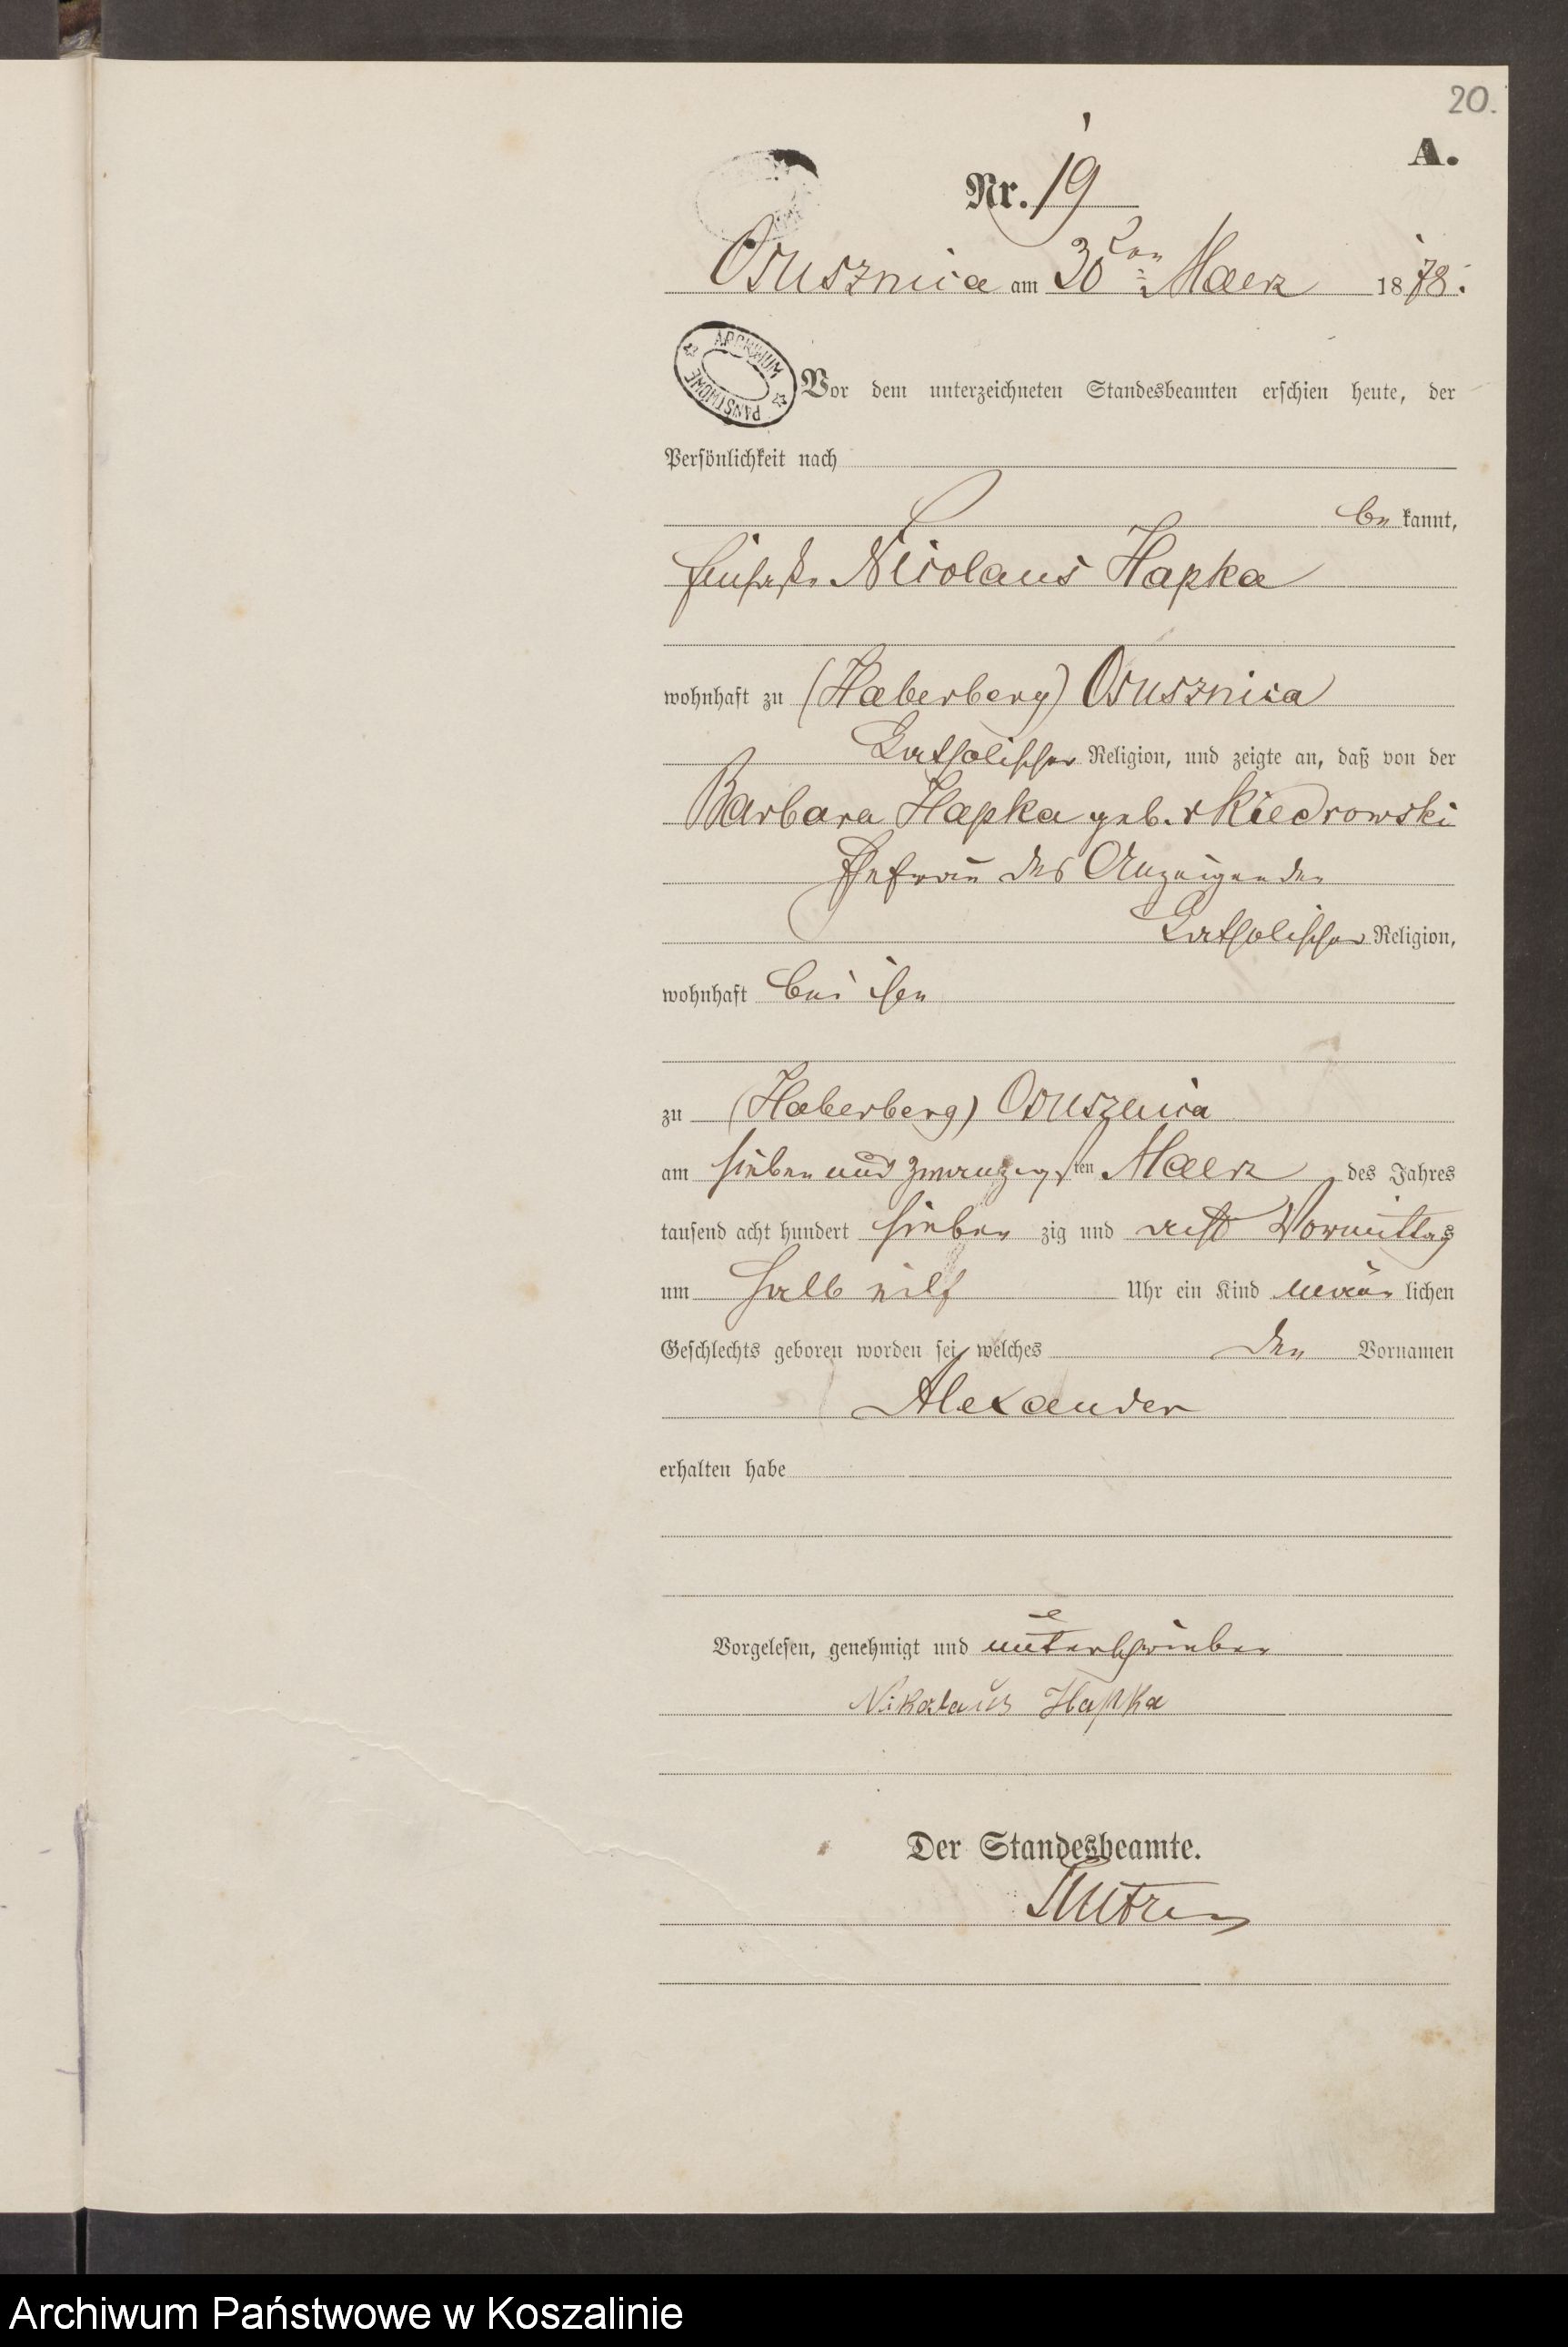 20.
A.
Nr. 19
Osusznica am 30ten Maerz 1878.
ARCHIWUM PAŃSTWOWE
Vor dem unterzeichneten Standesbeamten erschien heute, der
Persönlichkeit nach
be kannt,
Nicolaus Hapka
wohnhaft zu (Haberberg) Osusznica
Katholischer Religion, und zeigte an, daß von der
Barbara Hapka geb. v Kiedrowski
Ehefrau des Anzeigenden
Katholischer Religion,
wohnhaft bei ihm
zu (Haberberg) Osusznica
am sieben und zwanzigsten Maerz des Jahres
tausend acht hundert sieben zig und acht Vormittag
um halb eilf Uhr ein Kind män lichen
Geschlechts geboren worden sei, welches den Vornamen
Alexander
erhalten habe
Vorgelesen, genehmigt und unterschrieben
Nikolaus Hapka
Der Standesbeamte.
Archiwum Państwowe w Koszalinie